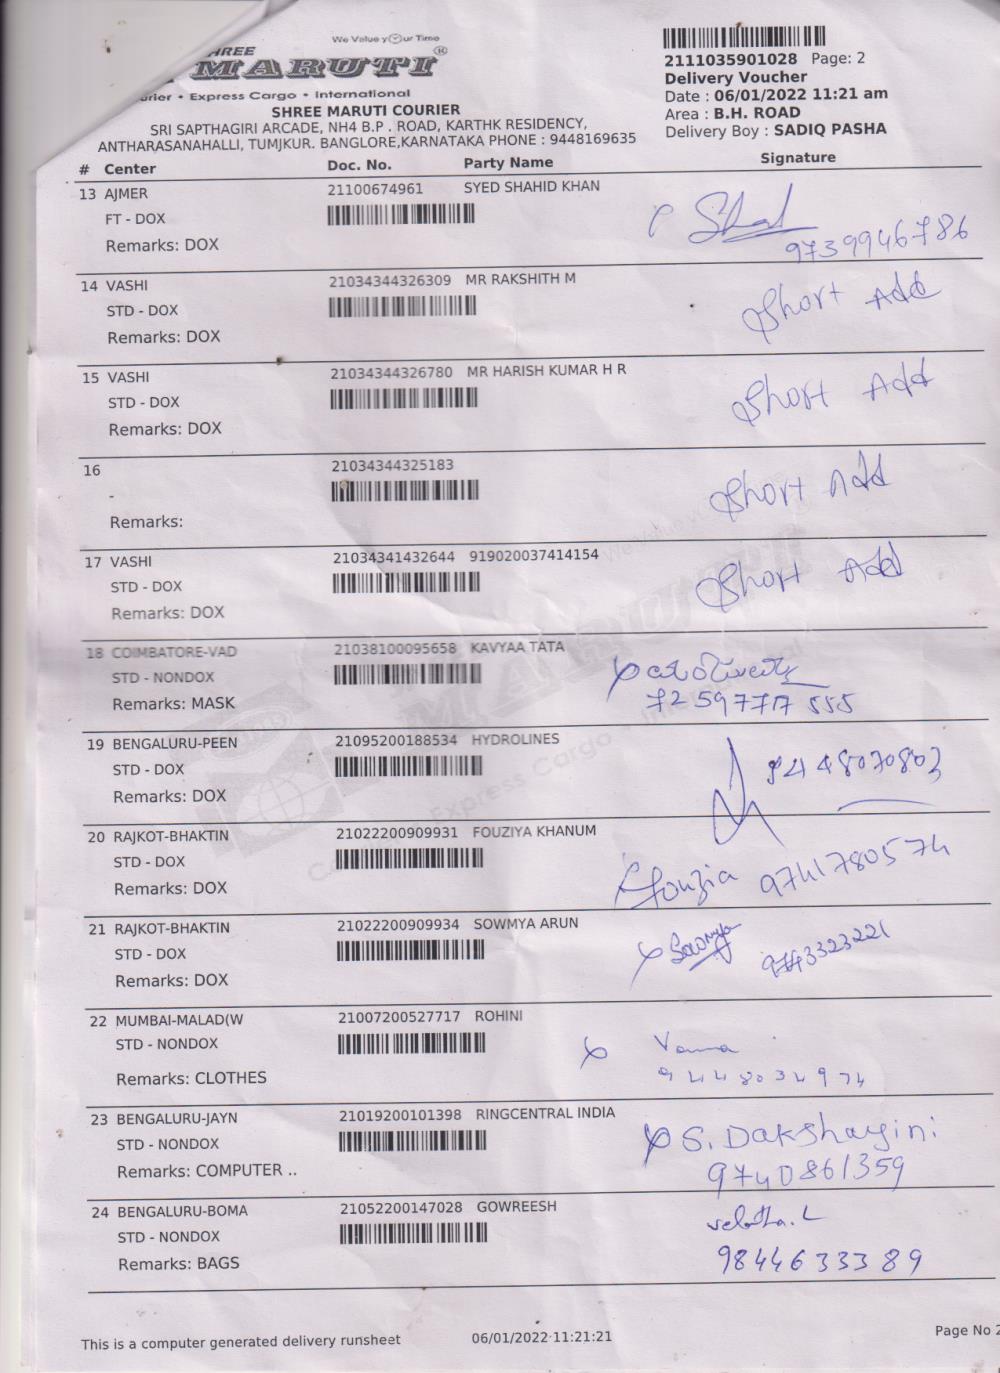 We Value yOur Time
SHREE
MARUTI ®
Courier • Express Cargo • International
SHREE MARUTI COURIER
SRI SAPTHAGIRI ARCADE, NH4 B.P . ROAD, KARTHK RESIDENCY,
ANTHARASANAHALLI, TUMJKUR. BANGLORE,KARNATAKA PHONE : 9448169635
2111035901028 Page: 2
Delivery Voucher
Date : 06/01/2022 11:21 am
Area : B.H. ROAD
Delivery Boy : SADIQ PASHA
# Center Doc. No. Party Name Signature
13 AJMER 21100674961 SYED SHAHID KHAN
FT - DOX
Remarks: DOX 9739946786
14 VASHI 21034344326309 MR RAKSHITH M
STD - DOX Short Add
Remarks: DOX
15 VASHI 21034344326780 MR HARISH KUMAR H R
STD - DOX Short Add
Remarks: DOX
16 21034344325183
- Short Add
Remarks:
17 VASHI 21034341432644 919020037414154
STD - DOX Short Add
Remarks: DOX
18 COIMBATORE-VAD 21038100095658 KAVYAA TATA
STD - NONDOX
Remarks: MASK 7259777555
19 BENGALURU-PEEN 21095200188534 HYDROLINES
STD - DOX 9448070803
Remarks: DOX
20 RAJKOT-BHAKTIN 21022200909931 FOUZIYA KHANUM
STD - DOX
Remarks: DOX fouzia 9741780574
21 RAJKOT-BHAKTIN 21022200909934 SOWMYA ARUN
STD - DOX Sowmya 9743323221
Remarks: DOX
22 MUMBAI-MALAD(W 21007200527717 ROHINI
STD - NONDOX
Remarks: CLOTHES 9448034974
23 BENGALURU-JAYN 21019200101398 RINGCENTRAL INDIA
STD - NONDOX S. Dakshayini
Remarks: COMPUTER .. 9740861359
24 BENGALURU-BOMA 21052200147028 GOWREESH
STD - NONDOX
Remarks: BAGS 9844633389
This is a computer generated delivery runsheet 06/01/2022 11:21:21 Page No 2